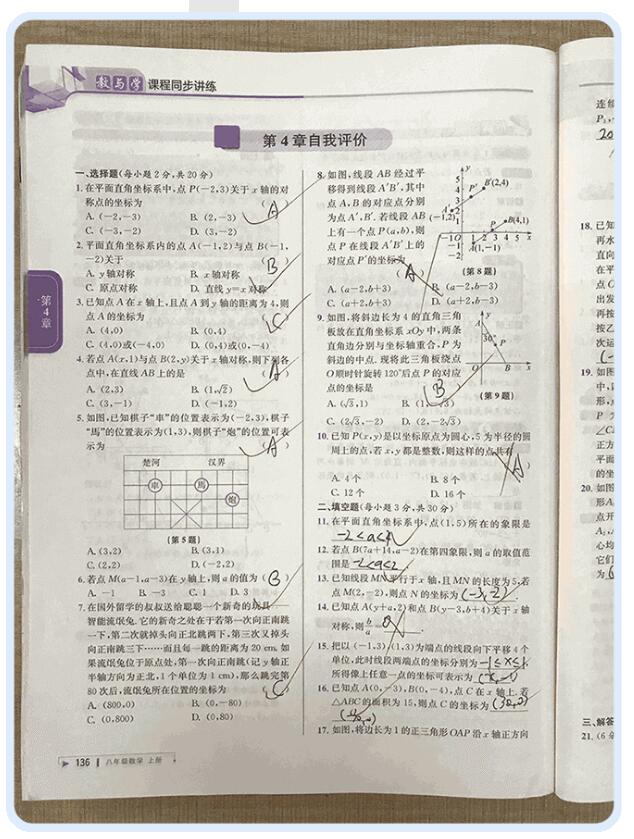 教与学 课程同步讲练
第4章自我评价
一、选择题(每小题2分,共20分)
1.在平面直角坐标系中,点P(-2,3)关于x轴的对
称点的坐标为 ( A )
A. (-2,-3) B. (2,-3)
C. (-3,-2) D. (-3,2)
2.平面直角坐标系内的点A(-1,2)与点B(-1,
-2)关于 ( B )
A. y轴对称 B. x轴对称
C. 原点对称 D. 直线y=x对称
3.已知点A在x轴上,且点A到y轴的距离为4,则
点A的坐标为 ( C )
A. (4,0) B. (0,4)
C. (4,0)或(-4,0) D. (0,4)或(0,-4)
4.若点A(x,1)与点B(2,y)关于x轴对称,则下列各
点中,在直线AB上的是 ( A )
A. (2,3) B. (1,√2)
C. (3,-1) D. (-1,2)
5.如图,已知棋子“車”的位置表示为(-2,3),棋子
“馬”的位置表示为(1,3),则棋子“炮”的位置可表
示为 ( A )
楚河 汉界
車 馬
炮
(第5题)
A. (3,2) B. (3,1)
C. (2,2) D. (-2,2)
6.若点M(a-1,a-3)在y轴上,则a的值为( B )
A. -1 B. -3 C. 1 D. 3
7.在国外留学的叔叔送给聪聪一个新奇的玩具——
智能流氓兔.它的新奇之处在于若第一次向正南跳
一下,第二次就掉头向正北跳两下,第三次又掉头
向正南跳三下……而且每一跳的距离为20 cm.如
果流氓兔位于原点处,第一次向正南跳(记y轴正
半轴方向为正北,1个单位为1 cm),那么跳完第
80次后,流氓兔所在位置的坐标为 ( C )
A. (800,0) B. (0,-80)
C. (0,800) D. (0,80)
136 八年级数学 上册
第4章
8.如图,线段AB经过平
移得到线段A′B′,其中
点A,B的对应点分别
为点A′,B′.若线段AB
上有一个点P(a,b),则
点P在线段A′B′上的
对应点P′的坐标为
( A )
y
5
4
3
2
1
A′
(-1,2)
P′
B′(2,4)
B(4,1)
P
-1 O 1 2 3 4 5 x
-1
-2
A(1,-1)
(第8题)
A. (a-2,b+3) B. (a-2,b-3)
C. (a+2,b+3) D. (a+2,b-3)
9.如图,将斜边长为4的直角三角
板放在直角坐标系xOy中,两条
直角边分别与坐标轴重合,P为
斜边的中点.现将此三角板绕点
O顺时针旋转120°后点P的对应
点的坐标是 ( B )
y
A
30°
P
O B x
(第9题)
A. (√3,1) B. (1,-√3)
C. (2√3,-2) D. (2,-2√3)
10.已知P(x,y)是以坐标原点为圆心,5为半径的圆
周上的点,若x,y都是整数,则这样的点共有
( A )
A. 4个 B. 8个
C. 12个 D. 16个
二、填空题(每小题3分,共30分)
11.在平面直角坐标系中,点(1,5)所在的象限是
-2<a<1
12.若点B(7a+14,a-2)在第四象限,则a的取值范
围是 -2<a<2 .
13.已知线段MN平行于x轴,且MN的长度为5,若
点M(2,-2),则点N的坐标为 (-3,-2) .
14.已知点A(y+a,2)和点B(y-3,b+4)关于x轴
对称,则b/a= 0 .
15.把以(-1,3),(1,3)为端点的线段向下平移4个
单位,此时线段两端点的坐标分别为 -1≤x≤1 ,
所得像上任意一点的坐标可表示为 (x,-1) .
16.已知点A(0,-3),B(0,-4),点C在x轴上.若
△ABC的面积为15,则点C的坐标为 (30,0)
17.如图,将边长为1的正三角形OAP沿x轴正方向
连续
20
18.已知
再水
直向
在平
点O
出发
再按
按乙
次运
19.如图
中,
形,
P 为
∠C
正方
平面
的坐
20.如图
形A
点开
心均
它们
为(
三、解答
21.(6分